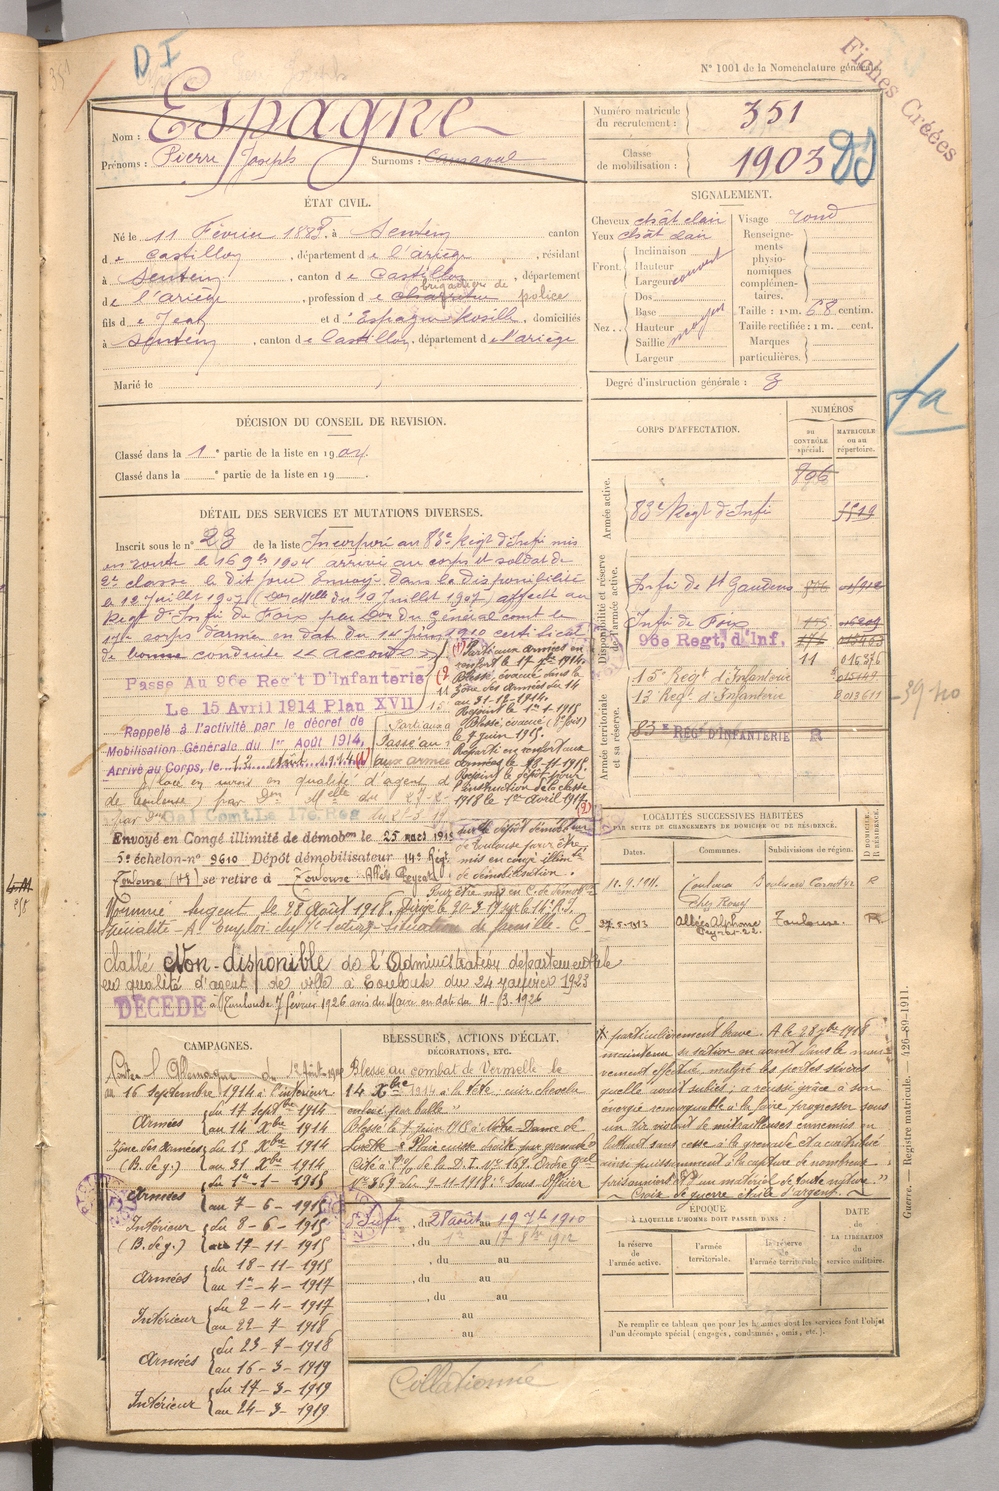 D I
N° 1001 de la Nomenclature générale.
Fiches Créées
Nom : Espagne
Prénoms : Pierre Joseph Surnoms :
Numéro matricule du recrutement : 351
Classe de mobilisation : 1903
ÉTAT CIVIL.
Né le 11 Février 1883, à Sentein canton
de Castillon, département de l'ariège, résidant
à Sentein, canton de Castillon, département
de l'ariège, profession de brigadier de police
fils de Jean et d'Espagne Rosille, domiciliés
à Sentein, canton de Castillon, département de l'ariège
Marié le
SIGNALEMENT.
Cheveux chât clair
Yeux chât clair
Front. Inclinaison
Hauteur
Largeur couvert
Dos
Nez . . Base
Hauteur moyen
Saillie
Largeur
Visage rond
Renseignements physionomiques complémentaires.
Taille : 1 m. 68 centim.
Taille rectifiée : 1 m. cent.
Marques particulières.
Degré d'instruction générale : 3
fa
DÉCISION DU CONSEIL DE REVISION.
Classé dans la 1e partie de la liste en 1904.
Classé dans la e partie de la liste en 19
CORPS D'AFFECTATION.
NUMÉROS
au CONTRÔLE spécial.
MATRICULE ou au répertoire.
Armée active.
806
83e Regt d'Infie
Disponibilité et réserve de l'armée active.
Infie de St Gaudens
Infie de Foix
96e Regt. d'Inf.
11 016376
15e Regt d'Infanterie 015149
13 Regt d'Infanterie
Armée territoriale et sa réserve.
83e REGt D'INFANTERIE R
DÉTAIL DES SERVICES ET MUTATIONS DIVERSES.
Inscrit sous le n° 23 de la liste Incorporé au 83e Regt d'Infie mis
en route le 16 9bre 1904 arrivé au corps et soldat de
2e classe le dit jour Envoyé dans la disponibilité
le 12 Juillet 1907 (Don Mlle du 10 Juillet 1907) affecté au
Regt d'Infie de Foix par Don du Général comt le
17e corps d'armée en dat du 14 juin 1910 certificat
de bonne conduite "accordé"
Passé Au 96e Reg't D'Infanterie
Le 15 Avril 1914 Plan XVII
Rappelé à l'activité par le décret de
Mobilisation Générale du 1er Août 1914,
Arrivé au Corps, le 12 Août 1914 (1)
(1) Parti aux armées en
renfort le 17 7bre 1914.
Blessé, évacué dans la
zône des Armées du 14
au 31-12-1914.
Rejoint le 1er-1-1915
Blessé, évacué (2e fois)
le 7 juin 1915.
Reparti en renfort aux
armées le 18-11-1915.
Rejoint le dépôt pour
l'instruction de la classe
1918 le 1er avril 1917 (2)
Placé en sursis en qualité d'agent de
de Toulouse, par Don Mlle du 27-2-
par Don Gal Comt. La 17e Reg
Envoyé en Congé illimité de démobon le 25 mars 1919
5e échelon-n° 9610 Dépôt démobilisateur 14e Rég.
Toulouse (VS) se retire à Toulouse Allée Peyrat
de Toulouse pour être
mis en congé illimité
de démobilisation.
Nommé Sergent le 28 Août 1918.
Spécialité - A - Emploi chef de section - Situation de famille. C
Classé Non-disponible de l'Administration départementale
en qualité d'agent de ville à Toulouse du 24 janvier 1923
DECEDE à Toulouse 7 février 1926 avis du Maire en date du 4-3-1926
LOCALITÉS SUCCESSIVES HABITÉES
PAR SUITE DE CHANGEMENTS DE DOMICILE OU DE RÉSIDENCE.
Dates. Communes. Subdivisions de région. D DOMICILE. R RÉSIDENCE.
11.9.1911. Toulouse Boulevard Carnot R
chez Roucy
27-5-1913 Allées Alphonse Peyrat 22 Toulouse. R
CAMPAGNES.
Contre l'Allemagne du 12 Août 1914
au 16 Septembre 1914 à l'intérieur
Armées du 17 Septbre 1914
au 14 Xbre 1914
Zône des Armées du 15 Xbre 1914
(B. de g.) au 31 Xbre 1914
Armées du 1er-1-1915
au 7-6-1915
Intérieur du 8-6-1915
(B. de g.) au 17-11-1915
Armées du 18-11-1915
au 1er-4-1917
Intérieur du 2-4-1917
au 22-7-1918
Armées du 23-7-1918
au 16-3-1919
Intérieur du 17-3-1919
au 24-3-1919
BLESSURES, ACTIONS D'ÉCLAT,
DÉCORATIONS, ETC.
Blessé au combat de Vermelle le
14 Xbre 1914 à la tête : cuir chevelu
enlevé par balle.
Blessé le 7 juin 1915 à Notre Dame de
Lorette "Plaie cuisse droite par grenade"
Cité à l'O/ de la D.I. N° 169. Ordre Gral
N° 369 du 9-11-1918 : "Sous-Officier
particulièrement brave. A le 28 7bre 1918
maintenu sa section en avant dans le mouvement
effectué, malgré les pertes sévères
quelle avait subies ; a réussi grâce à son
énergie remarquable à la faire progresser sous
un tir violent de mitrailleuses ennemies en
luttant sans cesse à la grenade et a contribué
ainsi puissamment à la capture de nombreux
prisonniers et d'un matériel de toute nature."
Croix de guerre étoile d'argent.
, du 28 août au 19 7bre 1910
, du 1er au 17 8bre 1912
, du au
, du au
, du au
au
au
ÉPOQUE
À LAQUELLE L'HOMME DOIT PASSER DANS :
la réserve de l'armée active.
l'armée territoriale.
la réserve de l'armée territoriale.
DATE de LA LIBÉRATION du service militaire.
Ne remplir ce tableau que pour les hommes dont les services font l'objet
d'un décompte spécial (engagés, condamnés, omis, etc.).
Guerre. — Registre matricule. — 426-89-1911.
Collationné